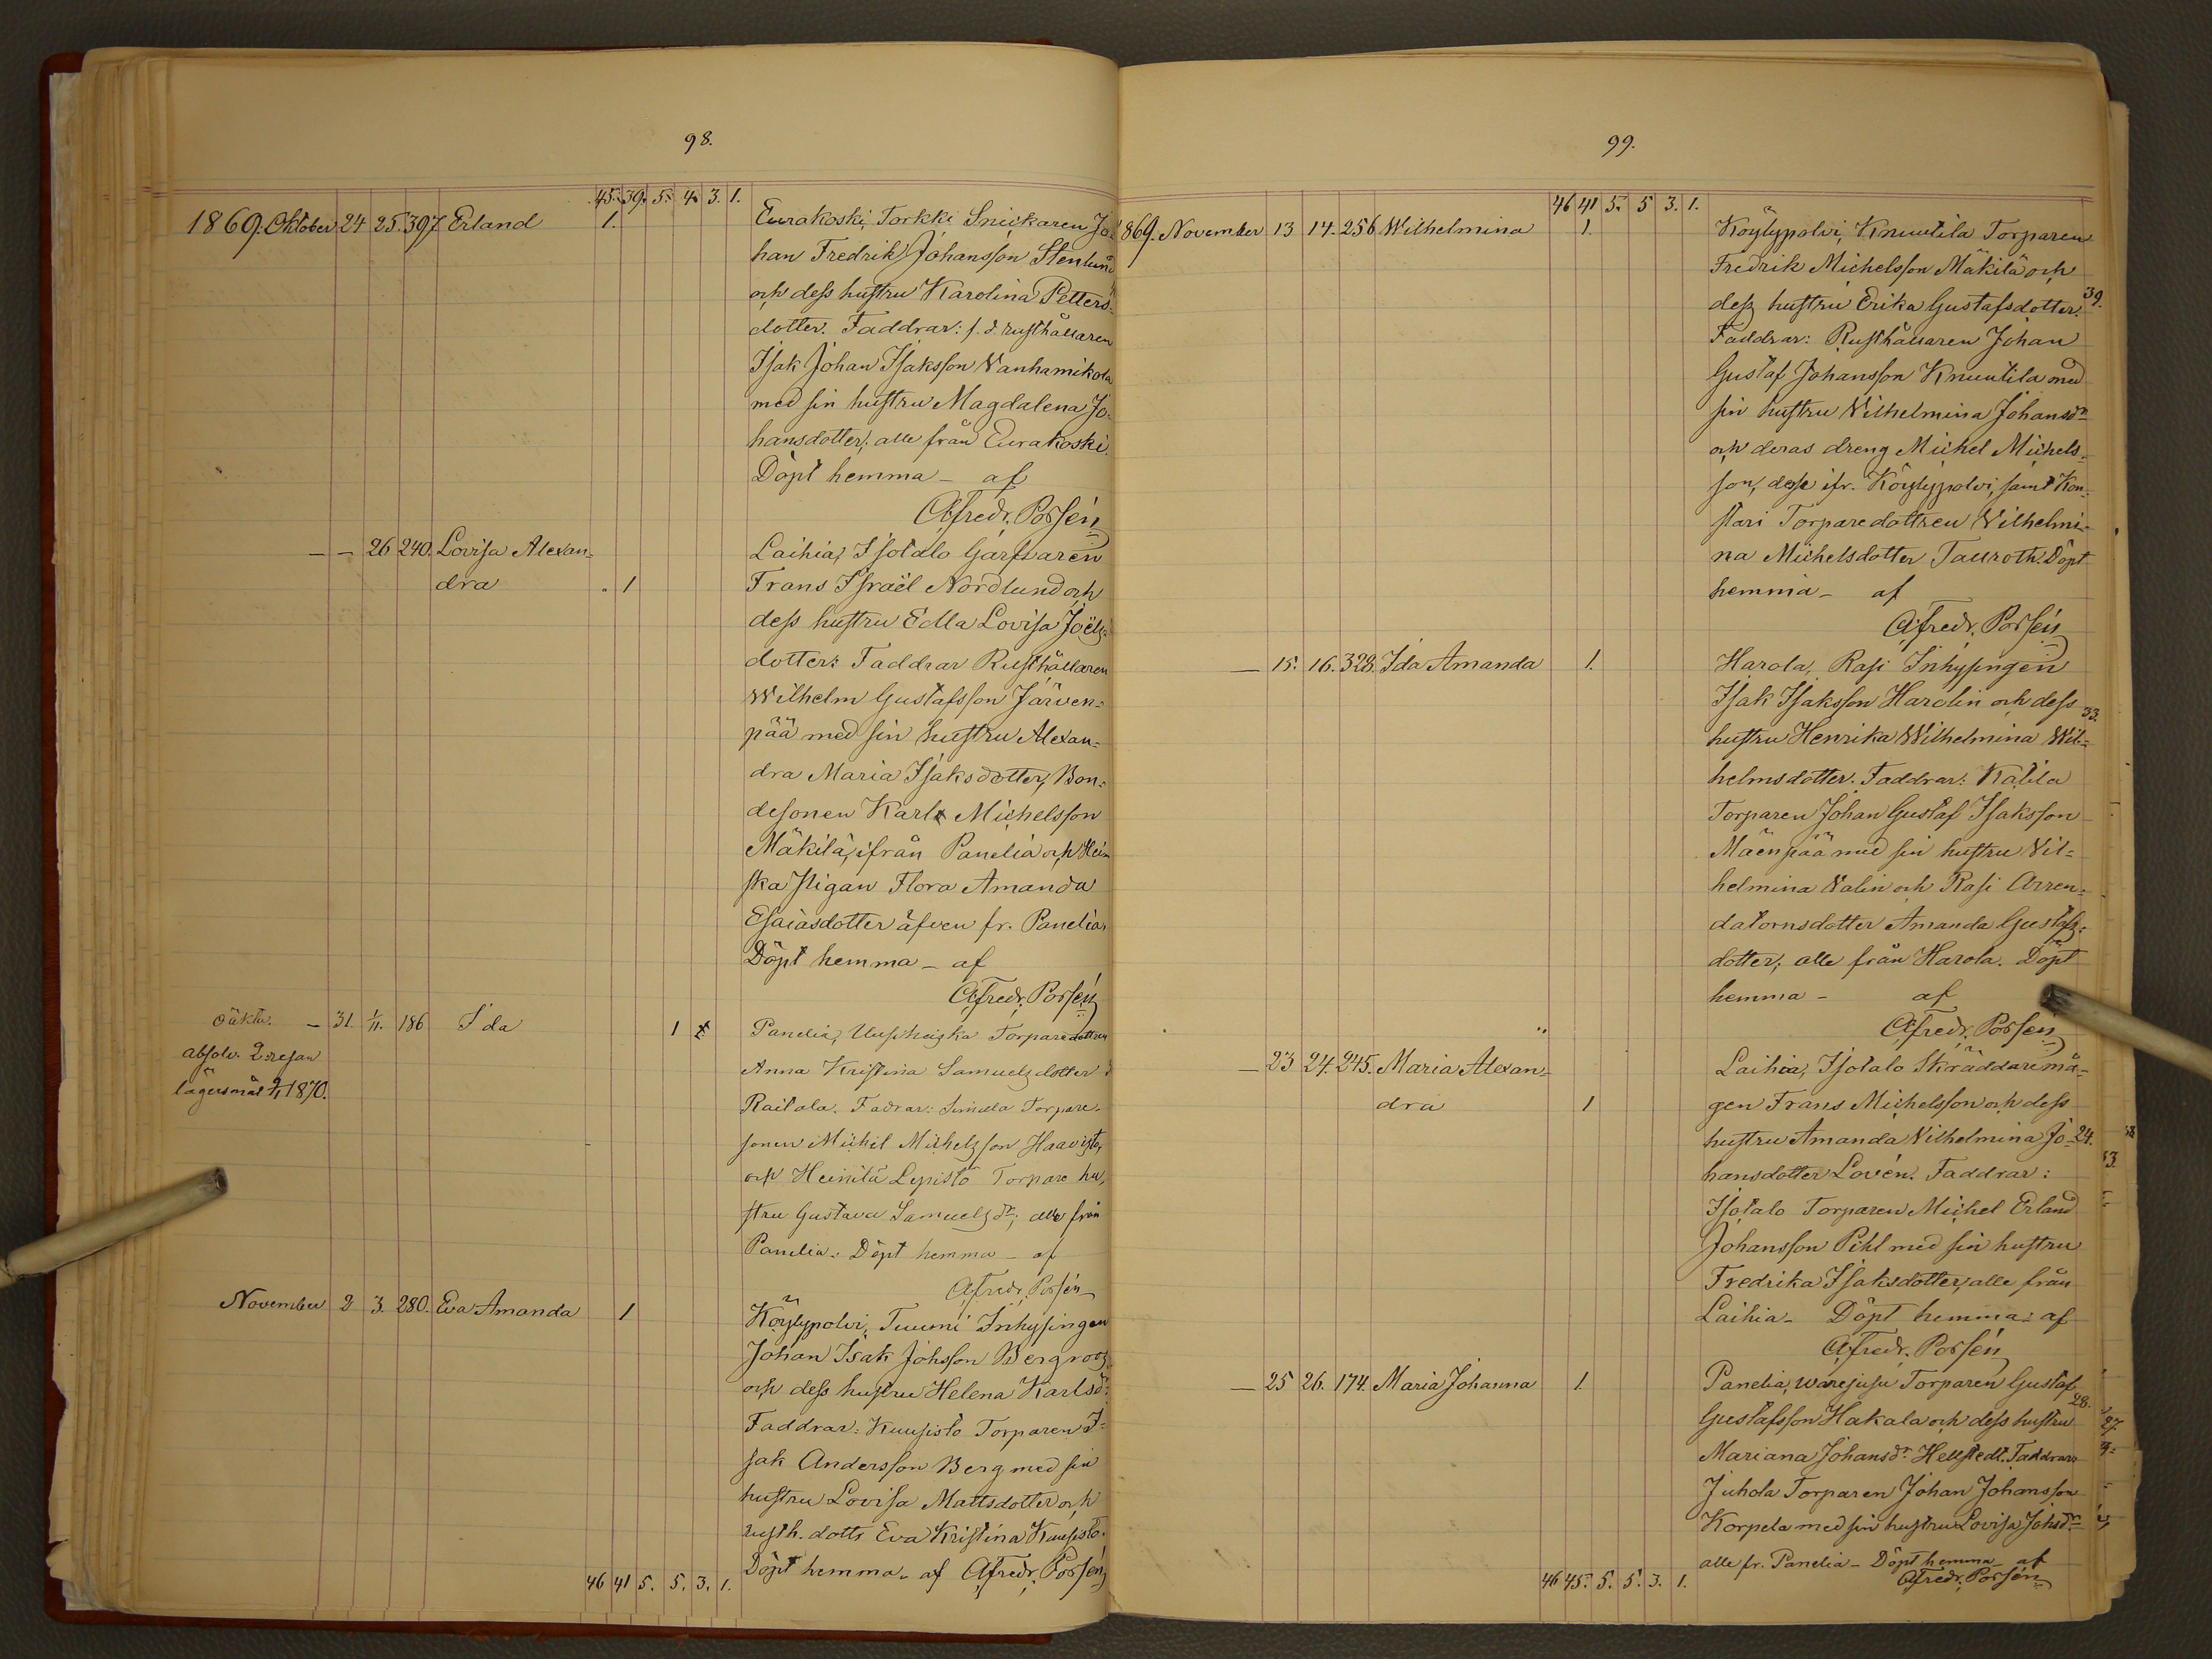 98.
45. 39. 5. 4. 3. 1.
1869. Oktober 24 25. 397 Erland 1. Eurakoski, Torkki Snickaren Jo-
han Fredrik Johansson Stenlund
och dess hustru Karolina Petters-
dotter. Faddrar: f. d. rusthållaren
Isak Johan Isaksson Vanhamikola
med sin hustru Magdalena Jo-
hansdotter, alle från Eurakoski.
Döpt hemma - af
Afredr. Porsén
— — 26 240. Lovisa Alexan= Laihia, Isotalo Garfvaren
dra . 1 Frans Israël Nordlund och
dess hustru Edla Lovisa Joëls-
dotter: Faddrar Rusthållaren
Wilhelm Gustafsson Järven=
pää med sin hustru Alexan=
dra Maria Isaksdotter, Bon=
desonen Karl Michelsson
Mäkilä, ifrån Panelia och Hei
ska pigan Flora Amanda
Esaiasdotter äfven fr. Panelia.
Döpt hemma - af
Afredr. Porsén
oäkta. — 31. 1/11. 186 Ida 1 Panelia, Torparedottren
absolv. 2: resan Anna Kristina Samuelsdotter
lägersmål 1870. Raitala. Fadrar: Simula Torpare-
sonen Michel Michelsson Haavisto,
och Heinilä Lepistö Torpare hu,
stru Gustava Samuelsdr; alle från
Panelia. Döpt hemma - af
Afredr. Porsén
November 2 3. 280. Eva Amanda 1 Köylypolvi, Tuumi Inhysingen
Johan Isak Johsson Bergroos
och dess hustru Helena Karlsdr.
Faddrar: Kuusisto Torparen I=
sak Andersson Berg med sin
hustru Lovisa Mattsdotter och
rusth. dottr Eva Kristina Kuusisto.
Döpt hemma. af Afredr. Porsén
46 41 5. 5. 3. 1.
99.
46 41 5. 5 3. 1.
1869. November 13 14. 256 Wilhelmina 1. Köylypolvi, Knuutila Torparen
Fredrik Michelsson Mäkilä och
dess hustru Erika Gustafsdotter. 39.
Faddrar: Rusthållaren Johan
Gustaf Johansson Knuutila med
sin hustru Vilhelmina Johansdr
och deras dreng Michel Michels=
son, desse ifr. Köylypolvi, samt Kon-
stari Torparedottren Vilhelmi-
na Michelsdotter Tauroth. Döpt
hemma - af
Afredr. Porsén
— 15. 16. 328. Ida Amanda 1. Harola, Rasi Inhysingen
Isak Isaksson Harolin och dess 33.
hustru Henrika Wilhelmina Wil=
helmsdotter. Faddrar: Katila
Torparen Johan Gustaf Isaksson
Mäenpää med sin hustru Vil=
helmina Valin och Rasi Arren=
datornsdotter Amanda Gustafs=
dotter; alle från Harola. Döpt
hemma - af
Afredr. Porsén
— 23 24. 245. Maria Alexan= Laihia, Isotalo Skräddaremå=
dra 1 gen Frans Michelsson och dess
hustru Amanda Vilhelmina Jo- 24.
hansdotter Lovén. Faddrar:
Isotalo Torparen Michel Erland
Johansson Pihl med sin hustru
Fredrika Isaksdotter, alle från
Laihia - Döpt hemma: af
Afredr. Porsén
— 25 26. 174. Maria Johanna 1. Panelia, Torparen Gustaf 28.
Gustafsson Hakala och dess hustru
Mariana Johansdr Hellstedt. Faddrar:
Juhola Torparen Johan Johansson
Korpela med sin hustru Lovisa Johsdr
alle fr. Panelia - Döpt hemma af
Afredr. Porsén
46 45. 5. 5. 3. 1.